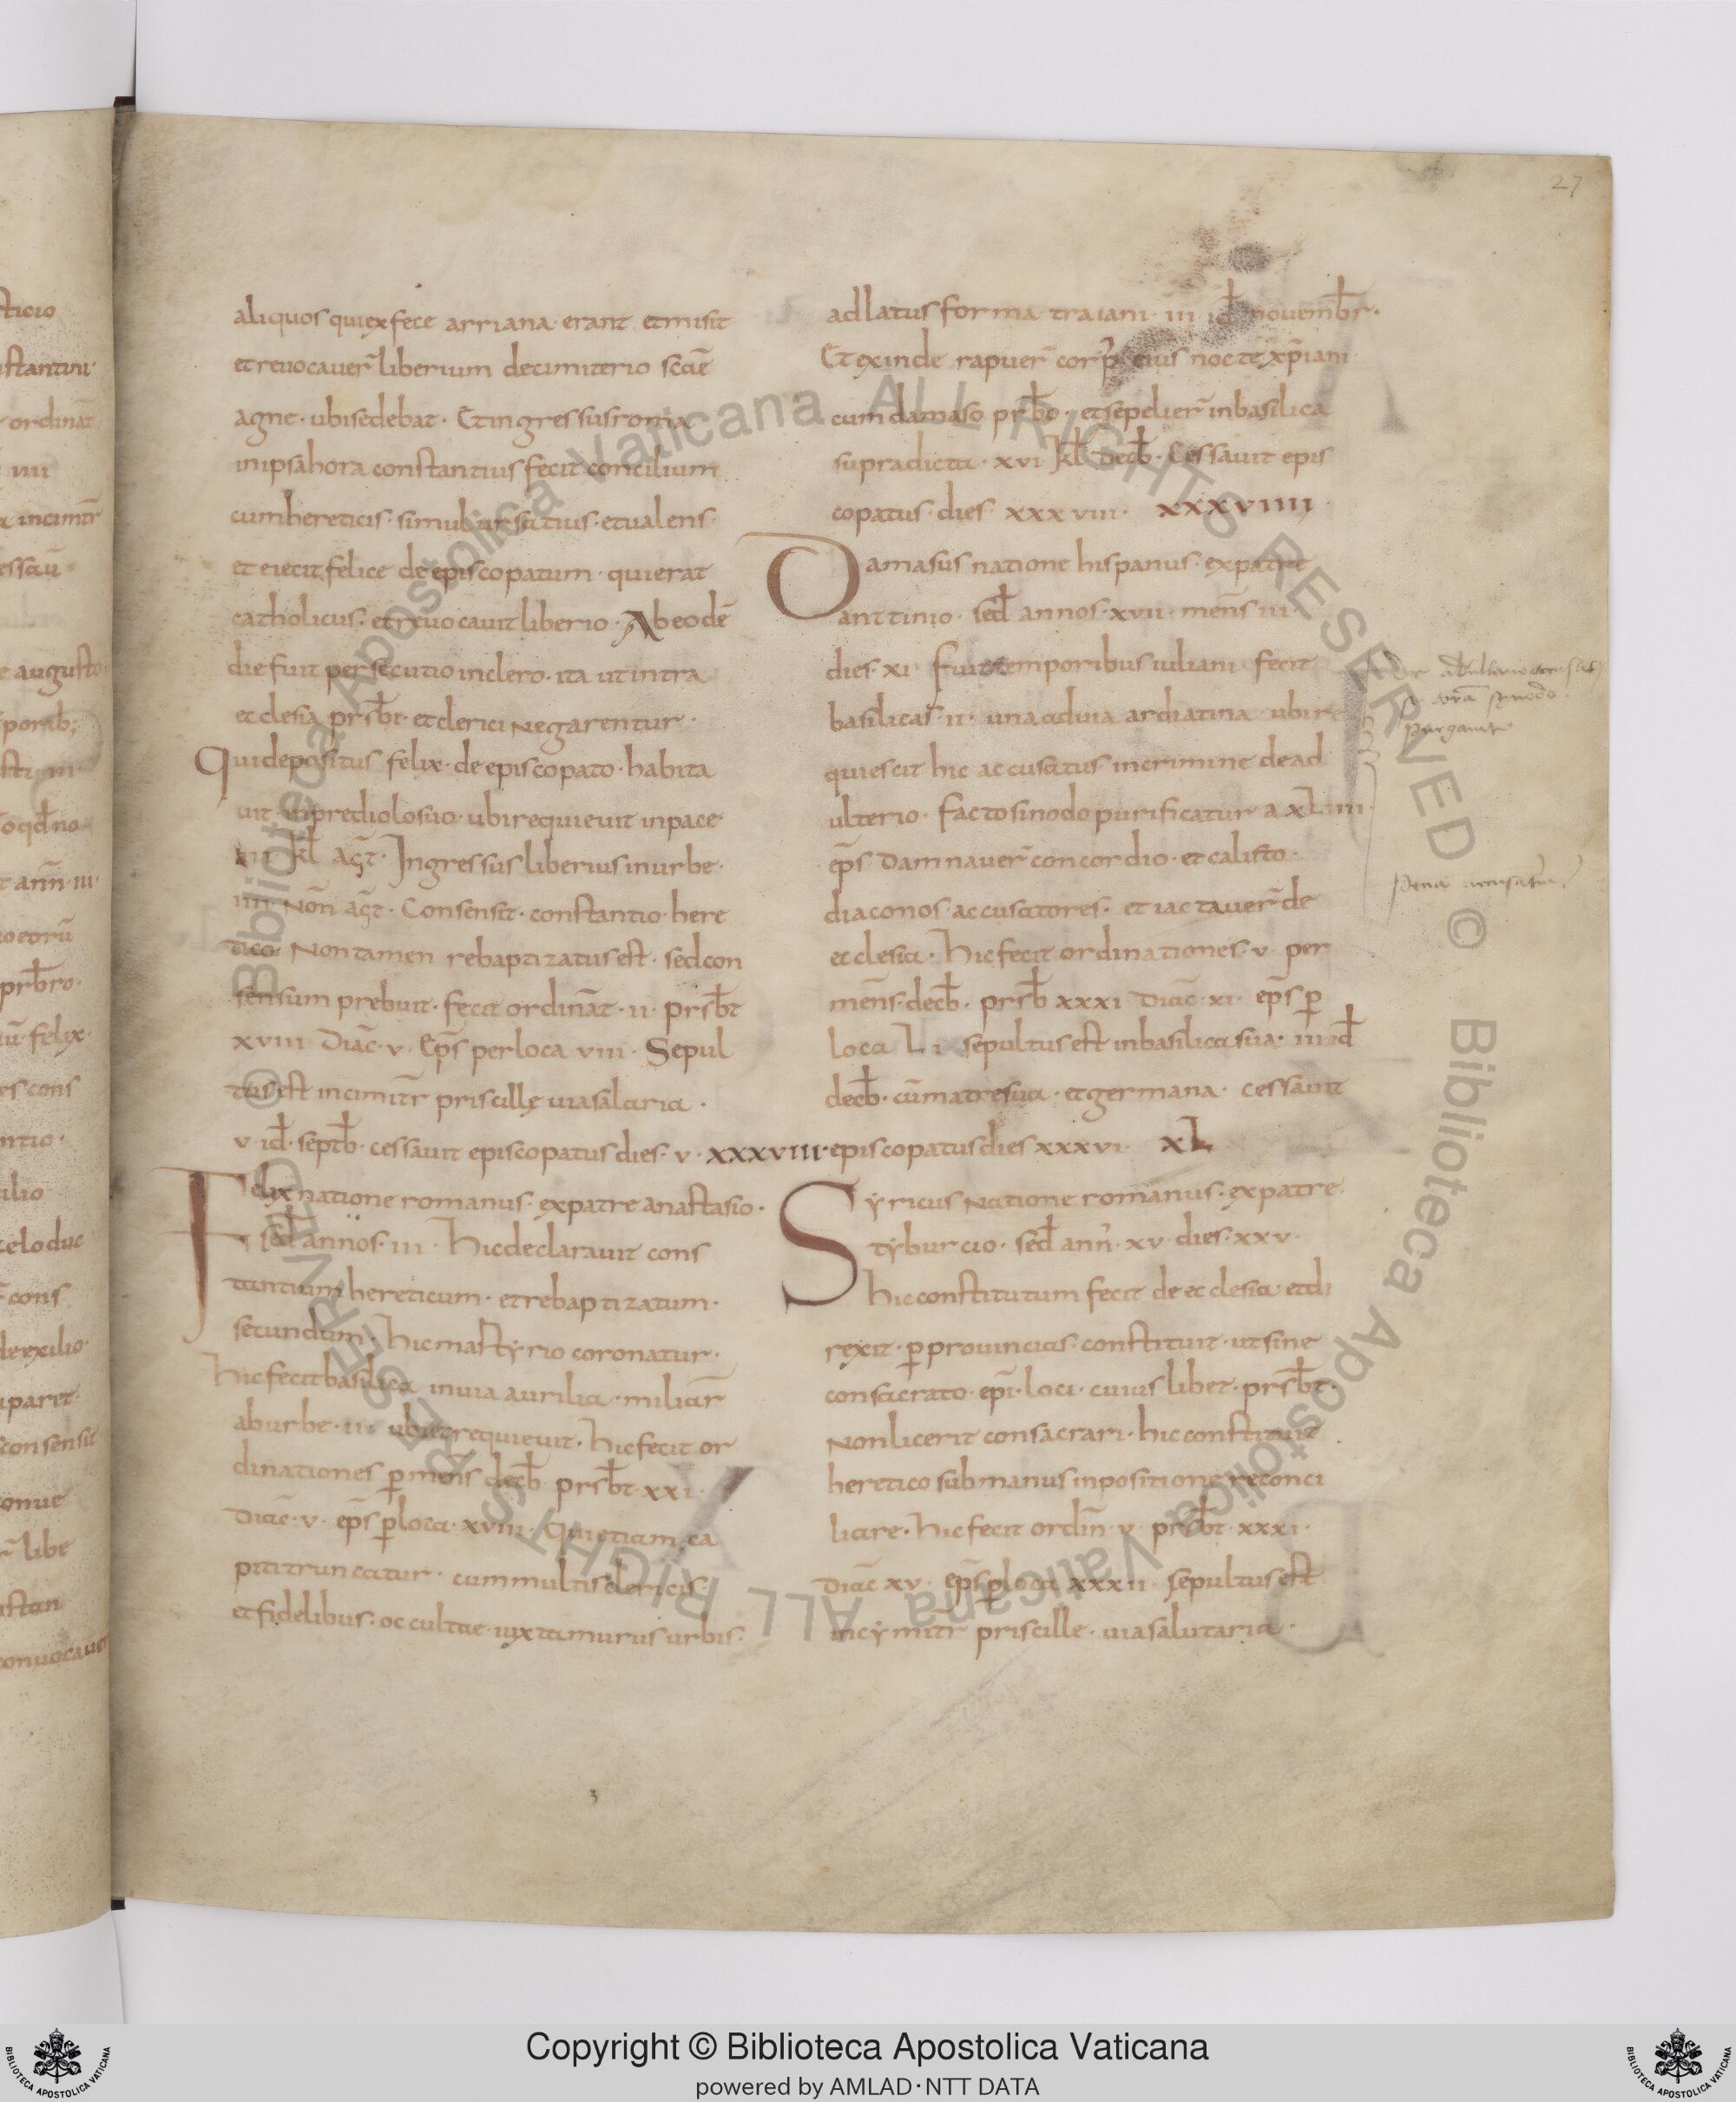 27
aliquos quiexfece arriana erant etmisit
etreuocauer̄ liberium decimiterio scāe
agne · ubisedebat · Etingressusroma
inipsahora constantius fecit concilium
cumhereticis · simul ursatius · etualens ·
et eiecit felice de episcopatum · quierat
catholicus · etreuocauit liberio · Abeodē
die fuit persecutio inclero · ita utintra
ecclesia prsb̄t · etclerici negarentur ·
Quidepositus felix · de episcopato · habita
uit · inprediolosuo · ubirequieuit inpace
kl̄ agt̄ · Ingressus liberius inurbe ·
iiii · Non̄ agt̄ · Consensit · constantio · here
tico · Non tamen rebaptizatus est · sedcon
sensum prebuit · fecit ordinat̄ · ii · prsb̄t
xviii Diac̄ · v · Ep̄s perloca viii · Sepul
tus est incimit̄r priscille uiasalaria ·
v · id̄ · septb̄ · cessauit episcopatus dies · v · xxxviii ·
Felix natione romanus · expatre anastasio ·
sed̄ annos · iii · hicdeclarauit cons
tantium hereticum · etrebaptizatum ·
secundum · hic martyrio coronatur ·
hicfecitbasilica inuia aurilia · miliar̄
aburbe · ii · ubietrequieuit · hicfecit or
dinationes p̄ mens̄ decb̄ · prsb̄t · xxi ·
Diac̄ · v · ep̄s p̄loca · xviiii · Quietiam ca
pititruncatur · cummultisclericis ·
etfidelibus · occultae · iuxtamurus urbis ·
adlatus forma traiani · iii id̄ nouemb̄r ·
Et exinde rapuer̄ corp̄ eius nocte xp̄iani
cum damaso prb̄o · etsepelier̄ inbasilica
supradicta · xvi kl̄ decb̄ · Cessauit epis
copatus · dies · xxxviii · xxxviiii ·
Damasus natione hispanus · expatre
anttinio · sed̄ annos · xvii · mens̄ iii ·
dies · xi · fuit temporibus iuliani fecit
basilicas · ii · una aduia ardiatina · ubire
quiescit hic accusatus incrimine dead
ulterio · factosinodo purificatur a xLiiii ·
ep̄s damnauer̄ concordio · et calisto ·
diaconos · accusatores · et iactauer̄ de
ecclesia · hicfecit ordinationes · v · per
mens̄ · decb̄ · prsb̄ xxxi Diac̄ · xi · ep̄s p̄
loca Li sepultus est inbasilica sua · iii id̄
decb̄ · cūmatresua · etgermana · cessauit
episcopatus dies xxxvi · xL
Syricus natione romanus · expatre
tyburcio · sed̄ ann̄ · xv · dies · xxv ·
hic constitutum fecit de ecclesia etdi
rexit · p̄ prouincias · constituit · ut sine
consacrato · ep̄i · loci · cuius libet · prsb̄t ·
Nonlicerit consacrari · hic constituit
heretico submanus inpositione reconci
liare · hicfecit ordin̄ · v · prsb̄t · xxxi ·
Diac̄ xv · ep̄s p̄loca xxxii · sepultus est
incymit̄r priscille · uiasalutaria ·
Copyright © Biblioteca Apostolica Vaticana
powered by AMLAD·NTT DATA